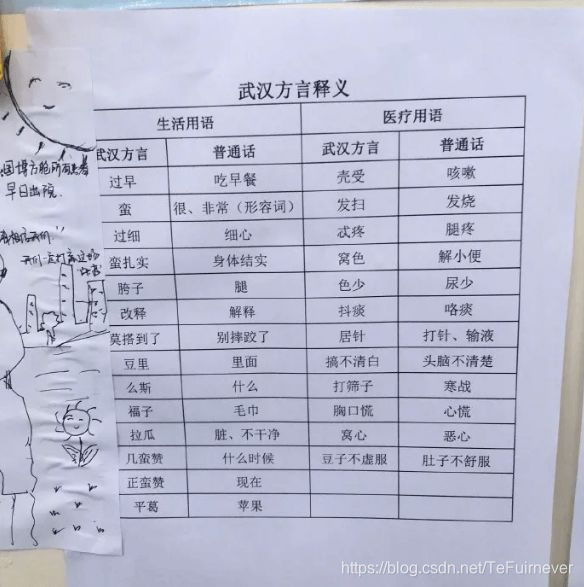 武汉方言释义
生活用语 医疗用语
武汉方言 普通话 武汉方言 普通话
过早 吃早餐 壳受 咳嗽
蛮 很、非常（形容词） 发扫 发烧
过细 细心 忒疼 腿疼
蛮扎实 身体结实 窝色 解小便
胯子 腿 色少 尿少
改释 解释 抖痰 咯痰
莫搭到了 别摔跤了 居针 打针、输液
豆里 里面 搞不清白 头脑不清楚
么斯 什么 打筛子 寒战
福子 毛巾 胸口慌 心慌
拉瓜 脏、不干净 窝心 恶心
几蛮赞 什么时候 豆子不虚服 肚子不舒服
正蛮赞 现在
平葛 苹果
国博方舱所有患者
早日出院.
https://blog.csdn.net/TeFuirnever